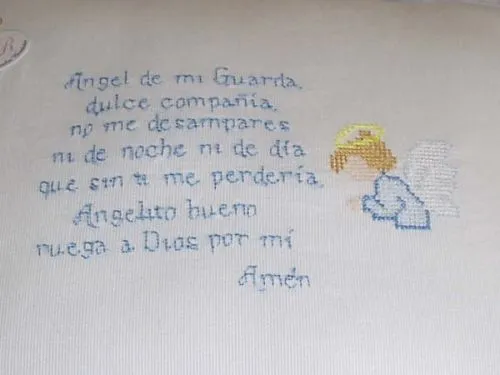 Angel de mi Guarda,
dulce compañía,
no me desampares
ni de noche ni de día
que sin ti me perdería,
Angelito bueno
ruega a Dios por mí
Amén